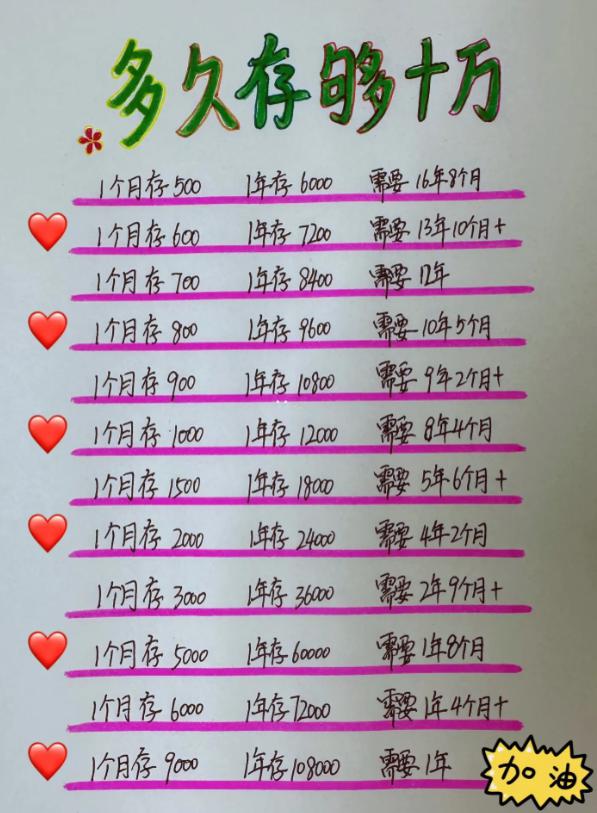 多久存够十万
1个月存500 1年存6000 需要16年8个月
1个月存600 1年存7200 需要13年10个月+
1个月存700 1年存8400 需要12年
1个月存800 1年存9600 需要10年5个月
1个月存900 1年存10800 需要9年2个月+
1个月存1000 1年存12000 需要8年4个月
1个月存1500 1年存18000 需要5年6个月+
1个月存2000 1年存24000 需要4年2个月
1个月存3000 1年存36000 需要2年9个月+
1个月存5000 1年存60000 需要1年8个月
1个月存6000 1年存72000 需要1年4个月+
1个月存9000 1年存108000 需要1年
加油